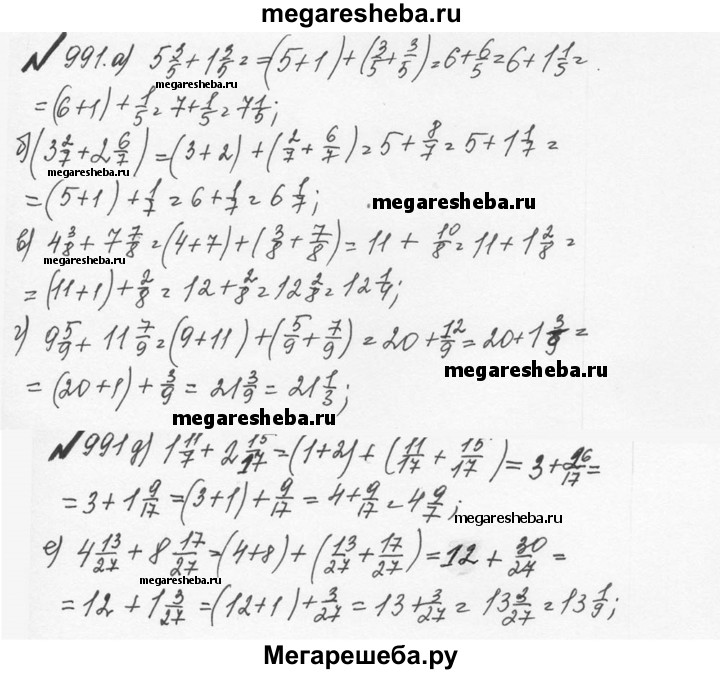 megaresheba.ru
№991. а) 5 3/5 + 1 3/5 = =(5+1)+(3/5+3/5)=6+6/5=6+1 1/5=
megaresheba.ru
=(6+1)+1/5=7+1/5=7 1/5;
б)(3 2/7+2 6/7)=(3+2)+(2/7+6/7)=5+8/7=5+1 1/7=
megaresheba.ru
=(5+1)+1/7=6+1/7=6 1/7;
megaresheba.ru
в) 4 3/8+7 7/8=(4+7)+(3/8+7/8)=11+10/8=11+1 2/8=
megaresheba.ru
=(11+1)+2/8=12+2/8=12 2/8=12 1/4;
г) 9 5/9+11 7/9=(9+11)+(5/9+7/9)=20+12/9=20+1 3/9=
megaresheba.ru
=(20+1)+3/9=21 3/9=21 1/3;
megaresheba.ru
№991 д) 1 11/7+2 15/17=(1+2)+(11/17+15/17)=3+26/17=
=3+1 9/17=(3+1)+9/17=4+9/17=4 9/7;
megaresheba.ru
е) 4 13/27+8 17/27=(4+8)+(13/27+17/27)=12+30/27=
megaresheba.ru
=12+1 3/27=(12+1)+3/27=13+3/27=13 3/27=13 1/9;
Мегарешеба.ру